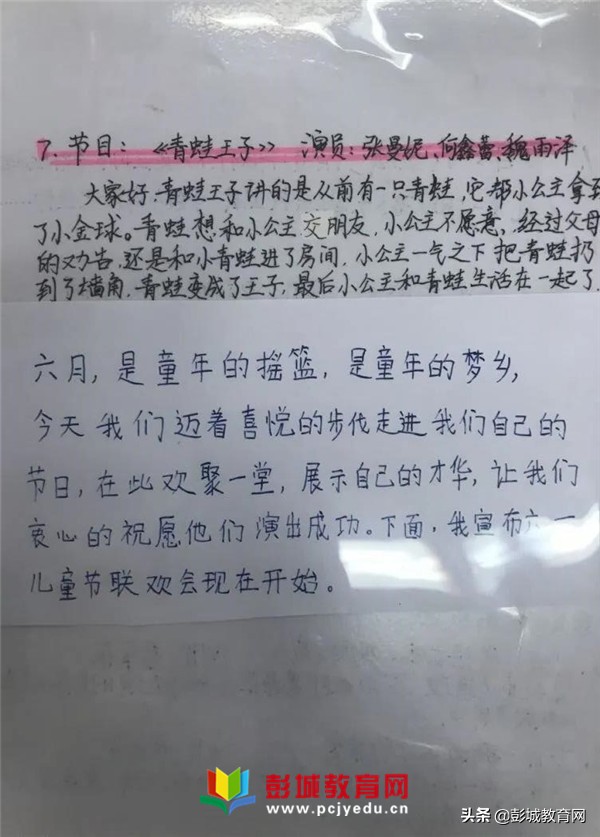 7. 节目：《青蛙王子》 演员：张曼妮，何鑫蕾，魏雨泽
大家好，青蛙王子讲的是从前有一只青蛙，它帮小公主拿到
了小金球。青蛙想和小公主交朋友，小公主不愿意，经过父母
的劝告，还是和小青蛙进了房间，小公主一气之下把青蛙扔
到了墙角，青蛙变成了王子，最后小公主和青蛙生活在一起了。
六月，是童年的摇篮，是童年的梦乡，
今天我们迈着喜悦的步伐走进我们自己的
节日，在此欢聚一堂，展示自己的才华，让我们
衷心的祝愿他们演出成功。下面，我宣布六一
儿童节联欢会现在开始。
彭城教育网
www.pcjyedu.cn
头条 @彭城教育网